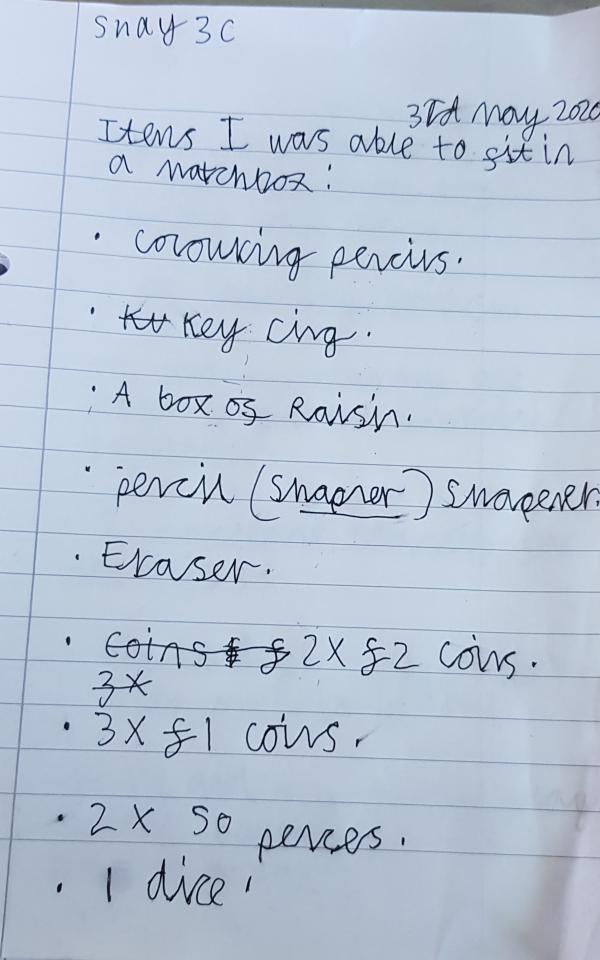 Snay 3C
3rd May 2020
Items I was able to fit in
a matchbox:
• Colouring pencils.
• Kv Key ring.
• A box of Raisin.
• pencil (Shapner) Shapener.
• Eraser.
• Coins £ £ 2X £2 coins.
3X
• 3X £1 coins.
• 2 X 50 pences.
• 1 dice.